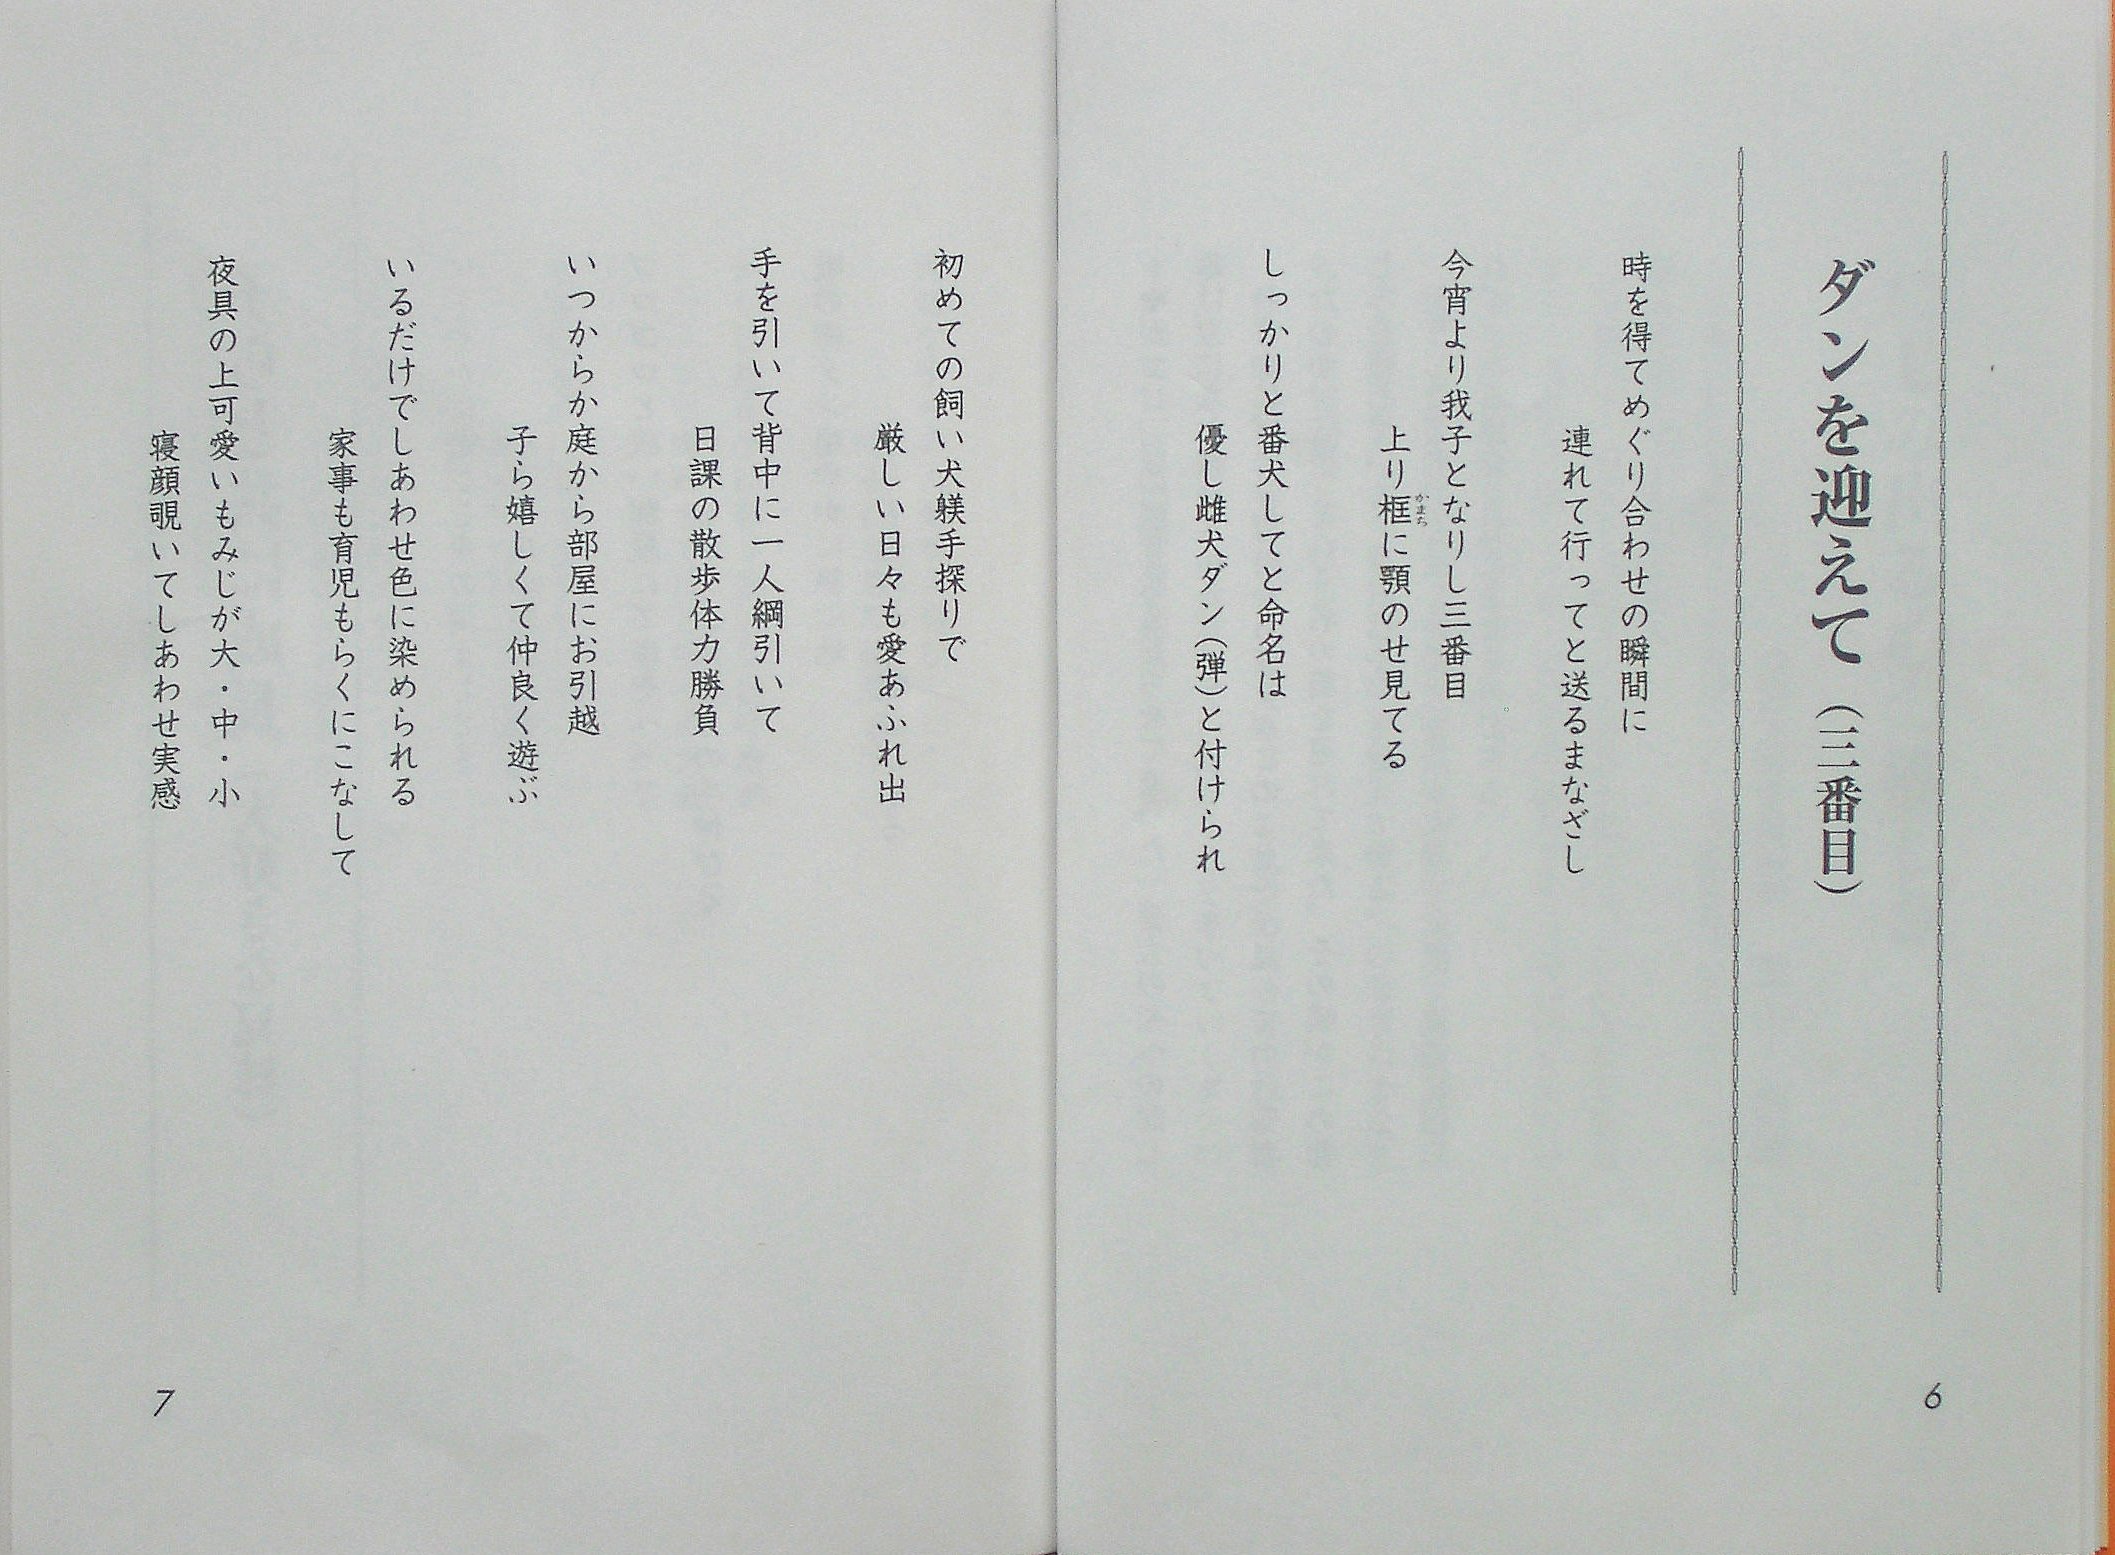 ダンを迎えて（三番目）
時を得てめぐり合わせの瞬間に
連れて行ってと送るまなざし
今宵より我子となりし三番目
上り框に顎のせ見てる
かまち
しっかりと番犬してと命名は
優し雌犬ダン（弾）と付けられ
6
初めての飼い犬躾手探りで
厳しい日々も愛あふれ出
手を引いて背中に一人綱引いて
日課の散歩体力勝負
いつからか庭から部屋にお引越
子ら嬉しくて仲良く遊ぶ
いるだけでしあわせ色に染められる
家事も育児もらくにこなして
夜具の上可愛いもみじが大・中・小
寝顔覗いてしあわせ実感
7